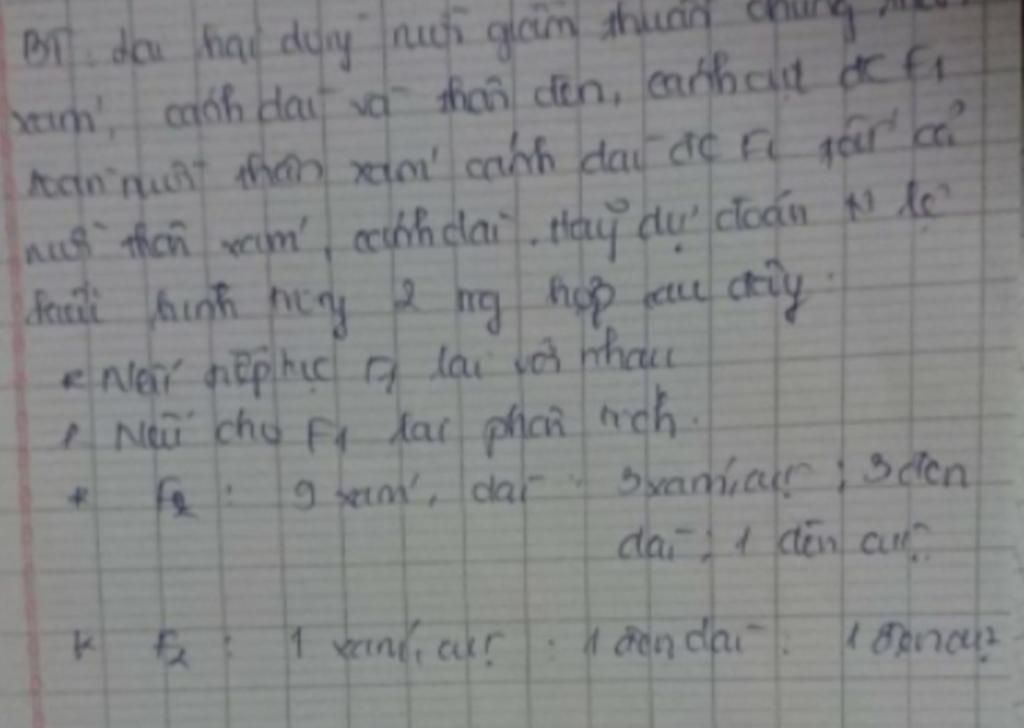 BT. lai hai dòng ruồi giấm thuần chủng
xám, cánh dài và thân đen, cánh cụt đc F1
toàn ruồi thân xám cánh dài đc F1 tất cả
ruồi thân xám, cánh dài. Hãy dự đoán tỉ lệ
hình 2 hợp sau đây.
Nếu tiếp tục F1 lai với nhau
Nếu cho F1 lai phân tích.
* F2 : 9 xám, dài : 3 xám, cụt : 3 đen
dài : 1 đen cụt
F2 : 1 xám, cụt : 1 đen dài : 1 đen cụt